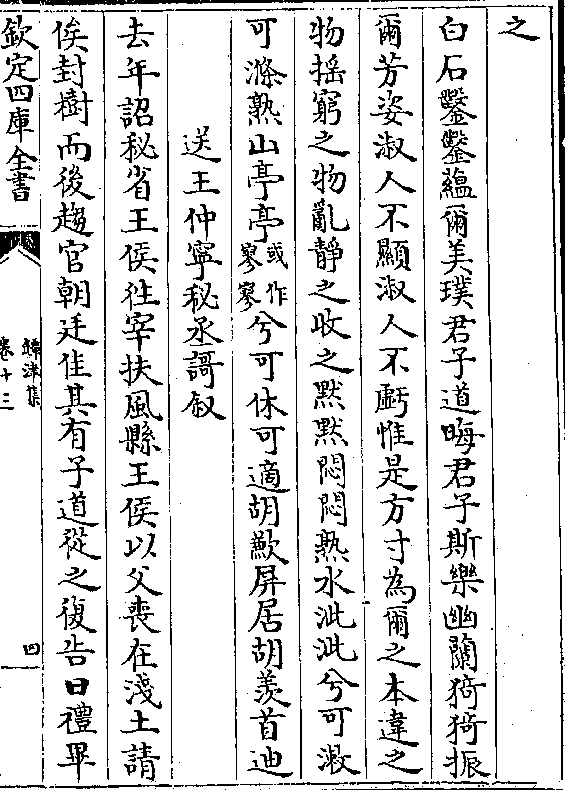 之
白石鑿鑿蘊爾美璞君子道晦君子斯樂幽蘭猗猗振
爾芳姿淑人不顯淑人不虧惟是方寸為爾之本違之
物揺窮之物亂靜之收之黙黙悶悶熟水泚泚兮可漱
可滌熟山亭亭或作寥寥兮可休可適胡歉屏居胡羡首迪
送王仲寧秘丞謌叙
去年詔秘省王侯徃宰扶風縣王侯以父喪在淺土請
俟封樹而後趨官朝廷佳其有子道從之復告曰禮畢
欽定四庫全書
鐔津集
卷十三
四